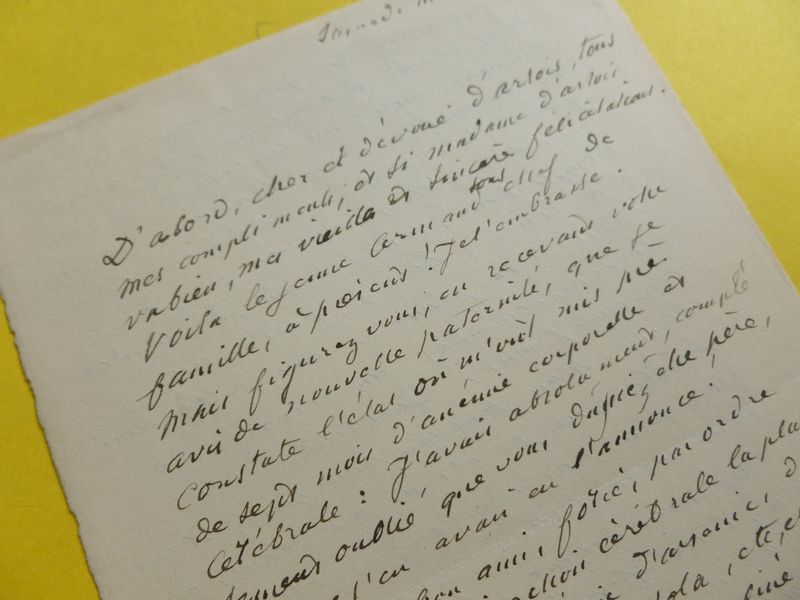 Samedi
D'abord, cher et dévoué d'artois, tous
mes compliments, et si madame d'artois
va bien, mes vieilles et sincères félicitations.
Voilà le jeune Armand sous chef de
famille, à présent ! Je l'embrasse.
Mais figurez vous, en recevant votre
avis de nouvelle paternité, que je
constate l'état où m'ont mis près
de sept mois d'anémie corporelle et
cérébrale : J'avais absolument, complè
tement oublié que vous dussiez être père,
l'on avait eu l'annonce !
bon ami, forcé, par ordre
cérébrale la plu
d'arsenic, d
ola, etc,